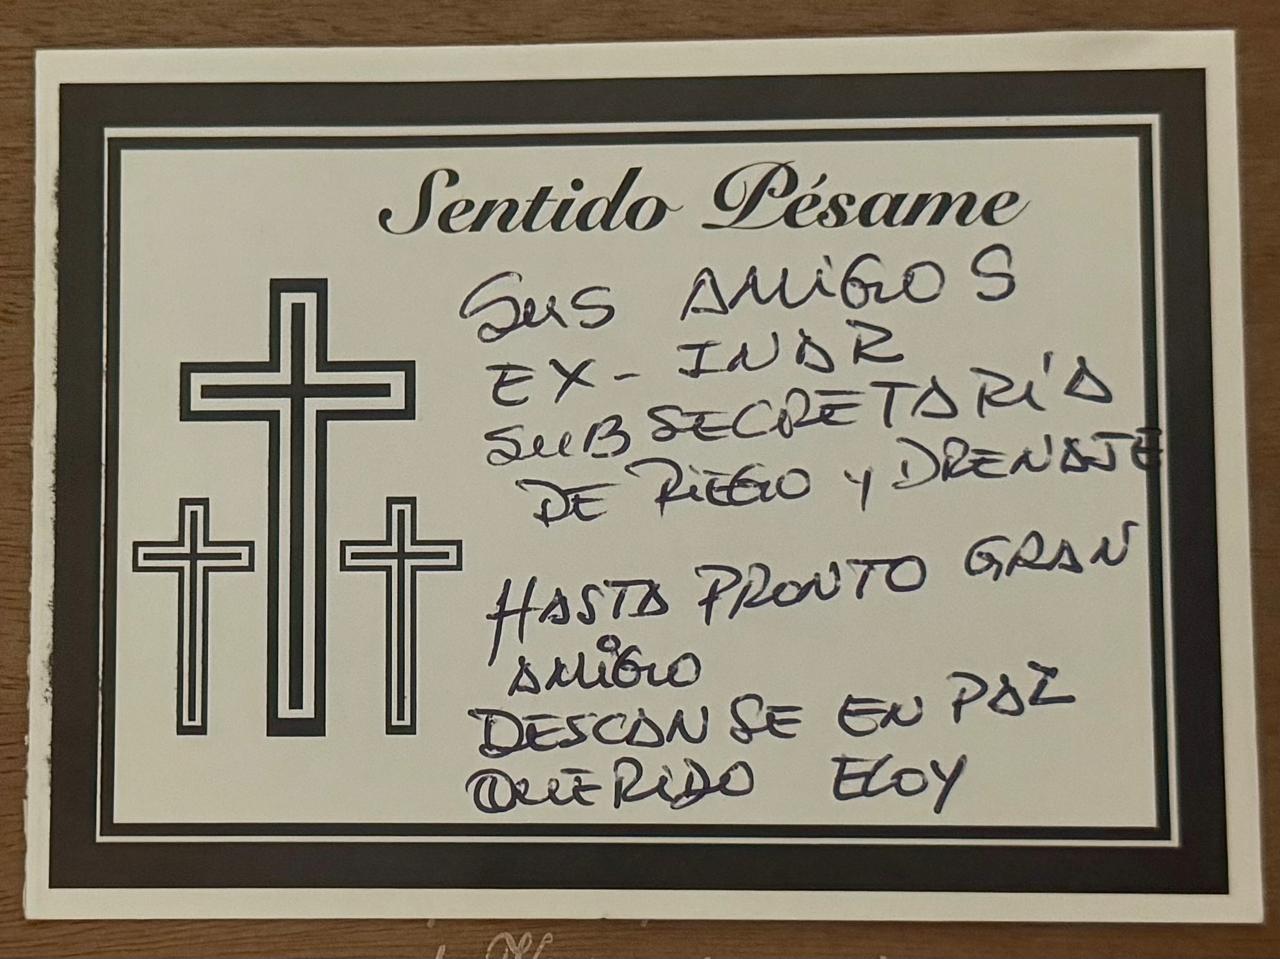 Sentido Pésame
SUS AMIGOS
EX-INAR
SUBSECRETARÍA
DE RIEGO Y DRENAJE
HASTA PRONTO GRAN
AMIGO
DESCANSE EN PAZ
QUERIDO ELOY